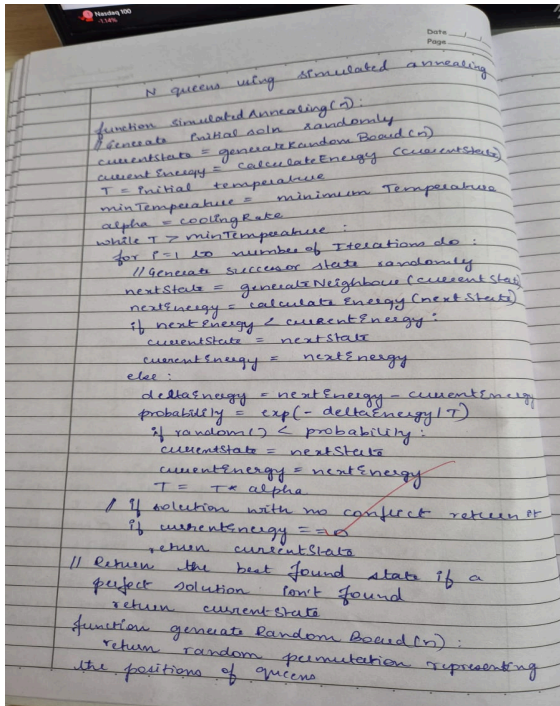 Nasdaq 100
-1.14%
Date
Page
N queens using simulated annealing
function simulatedAnnealing(n):
// Generate initial soln randomly
currentState = generateRandom Board(n)
current Energy = calculateEnergy (currentState)
T = initial temperature
minTemperature = minimum Temperature
alpha = coolingRate
while T > minTemperature :
for i=1 to number of Iterations do :
// Generate successor state randomly
nextState = generateNeighbour (current State)
nextEnergy = calculate Energy (next State)
if next Energy < currentEnergy :
currentState = nextState
currentEnergy = nextEnergy
else :
deltaEnergy = nextEnergy - currentEnergy
probability = exp(- deltaEnergy / T)
if random() < probability :
currentState = nextState
currentEnergy = nextEnergy
T = T * alpha
/ if solution with no conflict return it
if currentEnergy == 0
return currentState
// Return the best found state if a
perfect solution isn't found
return current-state
function generate Random Board (n) :
return random permutation representing
the positions of queens